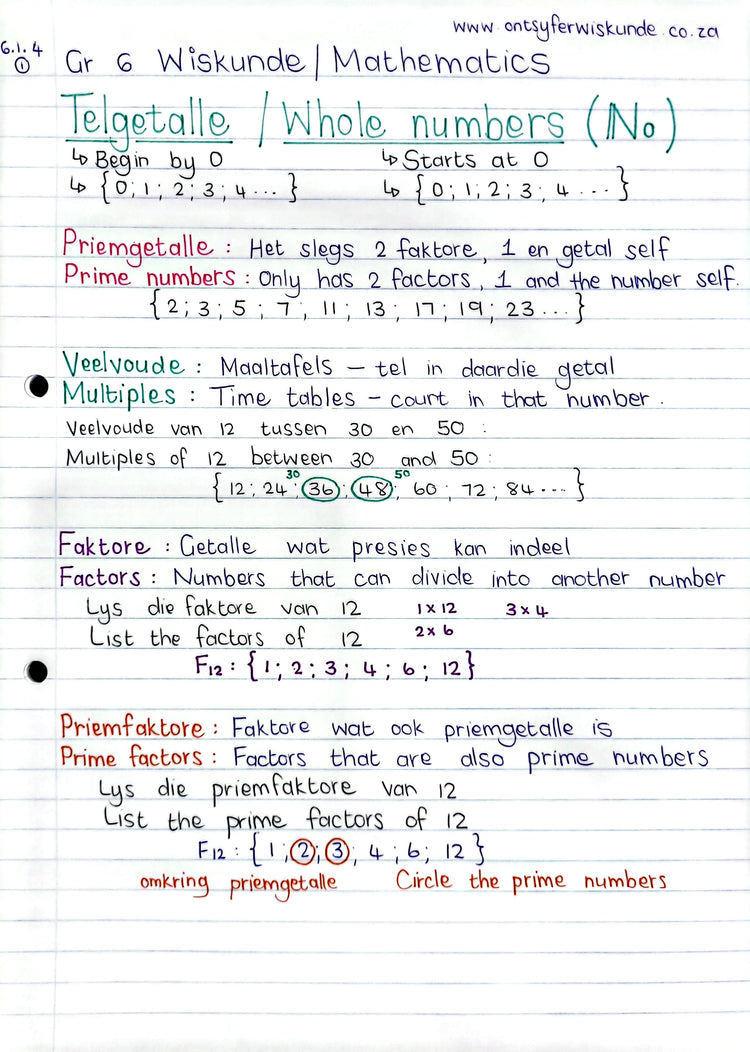 www.ontsyferwiskunde.co.za
6.1.4
①
Gr 6 Wiskunde | Mathematics
Telgetalle / Whole numbers (ℕ₀)
↳ Begin by 0 ↳ Starts at 0
↳ {0; 1; 2; 3; 4 ... } ↳ {0; 1; 2; 3; 4 ... }
Priemgetalle : Het slegs 2 faktore, 1 en getal self
Prime numbers : Only has 2 factors, 1 and the number self.
{2; 3; 5; 7; 11; 13; 17; 19; 23 ... }
Veelvoude : Maaltafels – tel in daardie getal
Multiples : Time tables – count in that number.
Veelvoude van 12 tussen 30 en 50 :
Multiples of 12 between 30 and 50 :
30 50
{12; 24; 36; 48; 60; 72; 84 ... }
Faktore : Getalle wat presies kan indeel
Factors : Numbers that can divide into another number
Lys die faktore van 12 1 x 12 3 x 4
List the factors of 12 2 x 6
F₁₂ : {1; 2; 3; 4; 6; 12}
Priemfaktore : Faktore wat ook priemgetalle is
Prime factors : Factors that are also prime numbers
Lys die priemfaktore van 12
List the prime factors of 12
F₁₂ : {1; 2; 3; 4; 6; 12}
omkring priemgetalle Circle the prime numbers